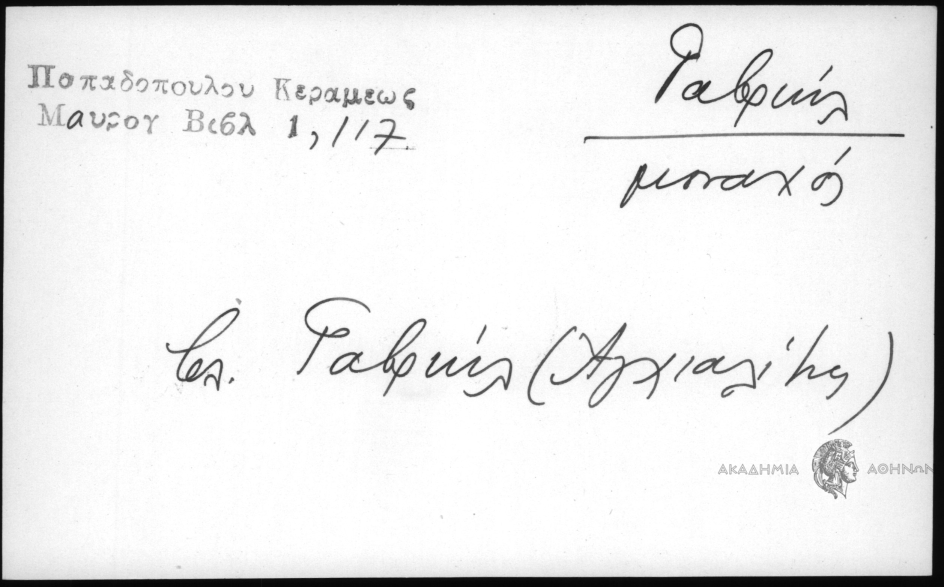 Παπαδοπουλου Κεραμεως
Μαυρογ Βιβλ 1, 117
Γαβριήλ
μοναχός
βλ. Γαβριήλ (Ἀγχιαλίτης)
ΑΚΑΔΗΜΙΑ ΑΘΗΝΩΝ